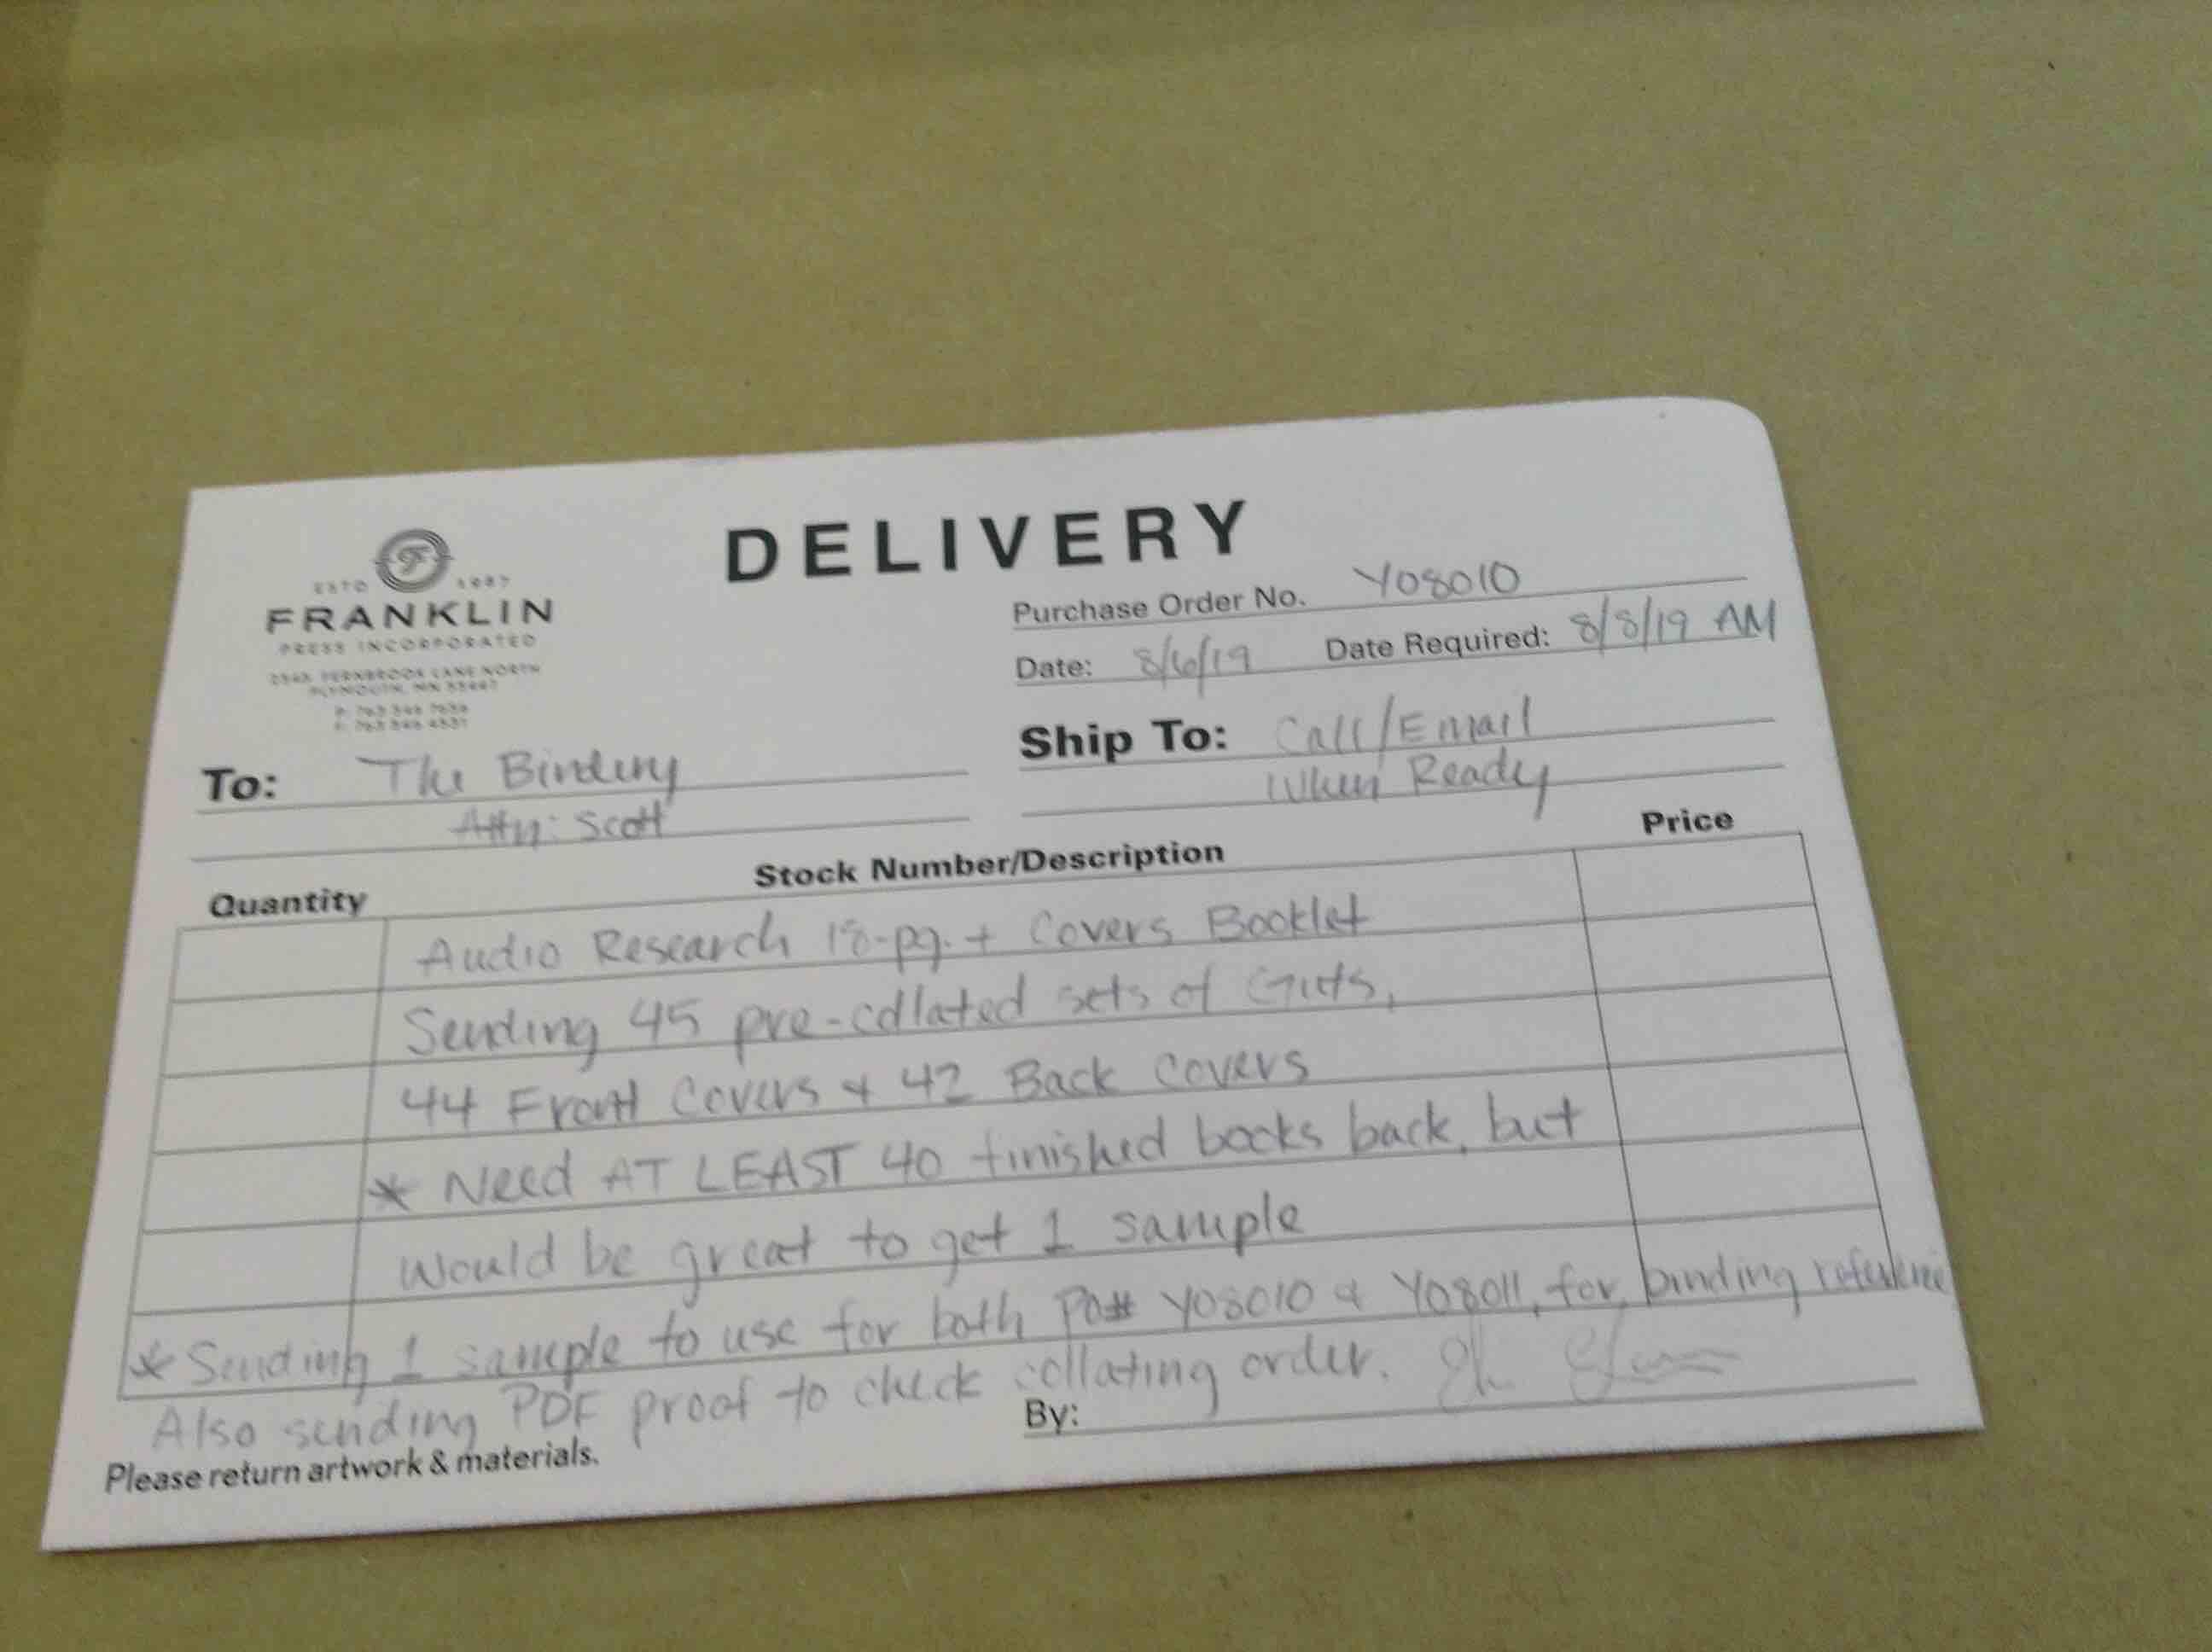 DELIVERY
ESTD 1987
FRANKLIN
PRESS INCORPORATED
FERNBROOK LANE NORTH
PLYMOUTH, MN 55447
Purchase Order No. Y08010
Date: 8/6/19 Date Required: 8/8/19 AM
To: The Bindery
Attn: Scott
Ship To: Call/Email
When Ready
Quantity Stock Number/Description Price
Audio Research 18-pg. + Covers Booklet
Sending 45 pre-collated sets of Guts,
44 Front Covers & 42 Back Covers
* Need AT LEAST 40 finished books back, but
would be great to get 1 sample
* Sending 1 sample to use for both PO# Y08010 & Y08011, for binding reference
Also sending PDF proof to check collating order.
By:
Please return artwork & materials.